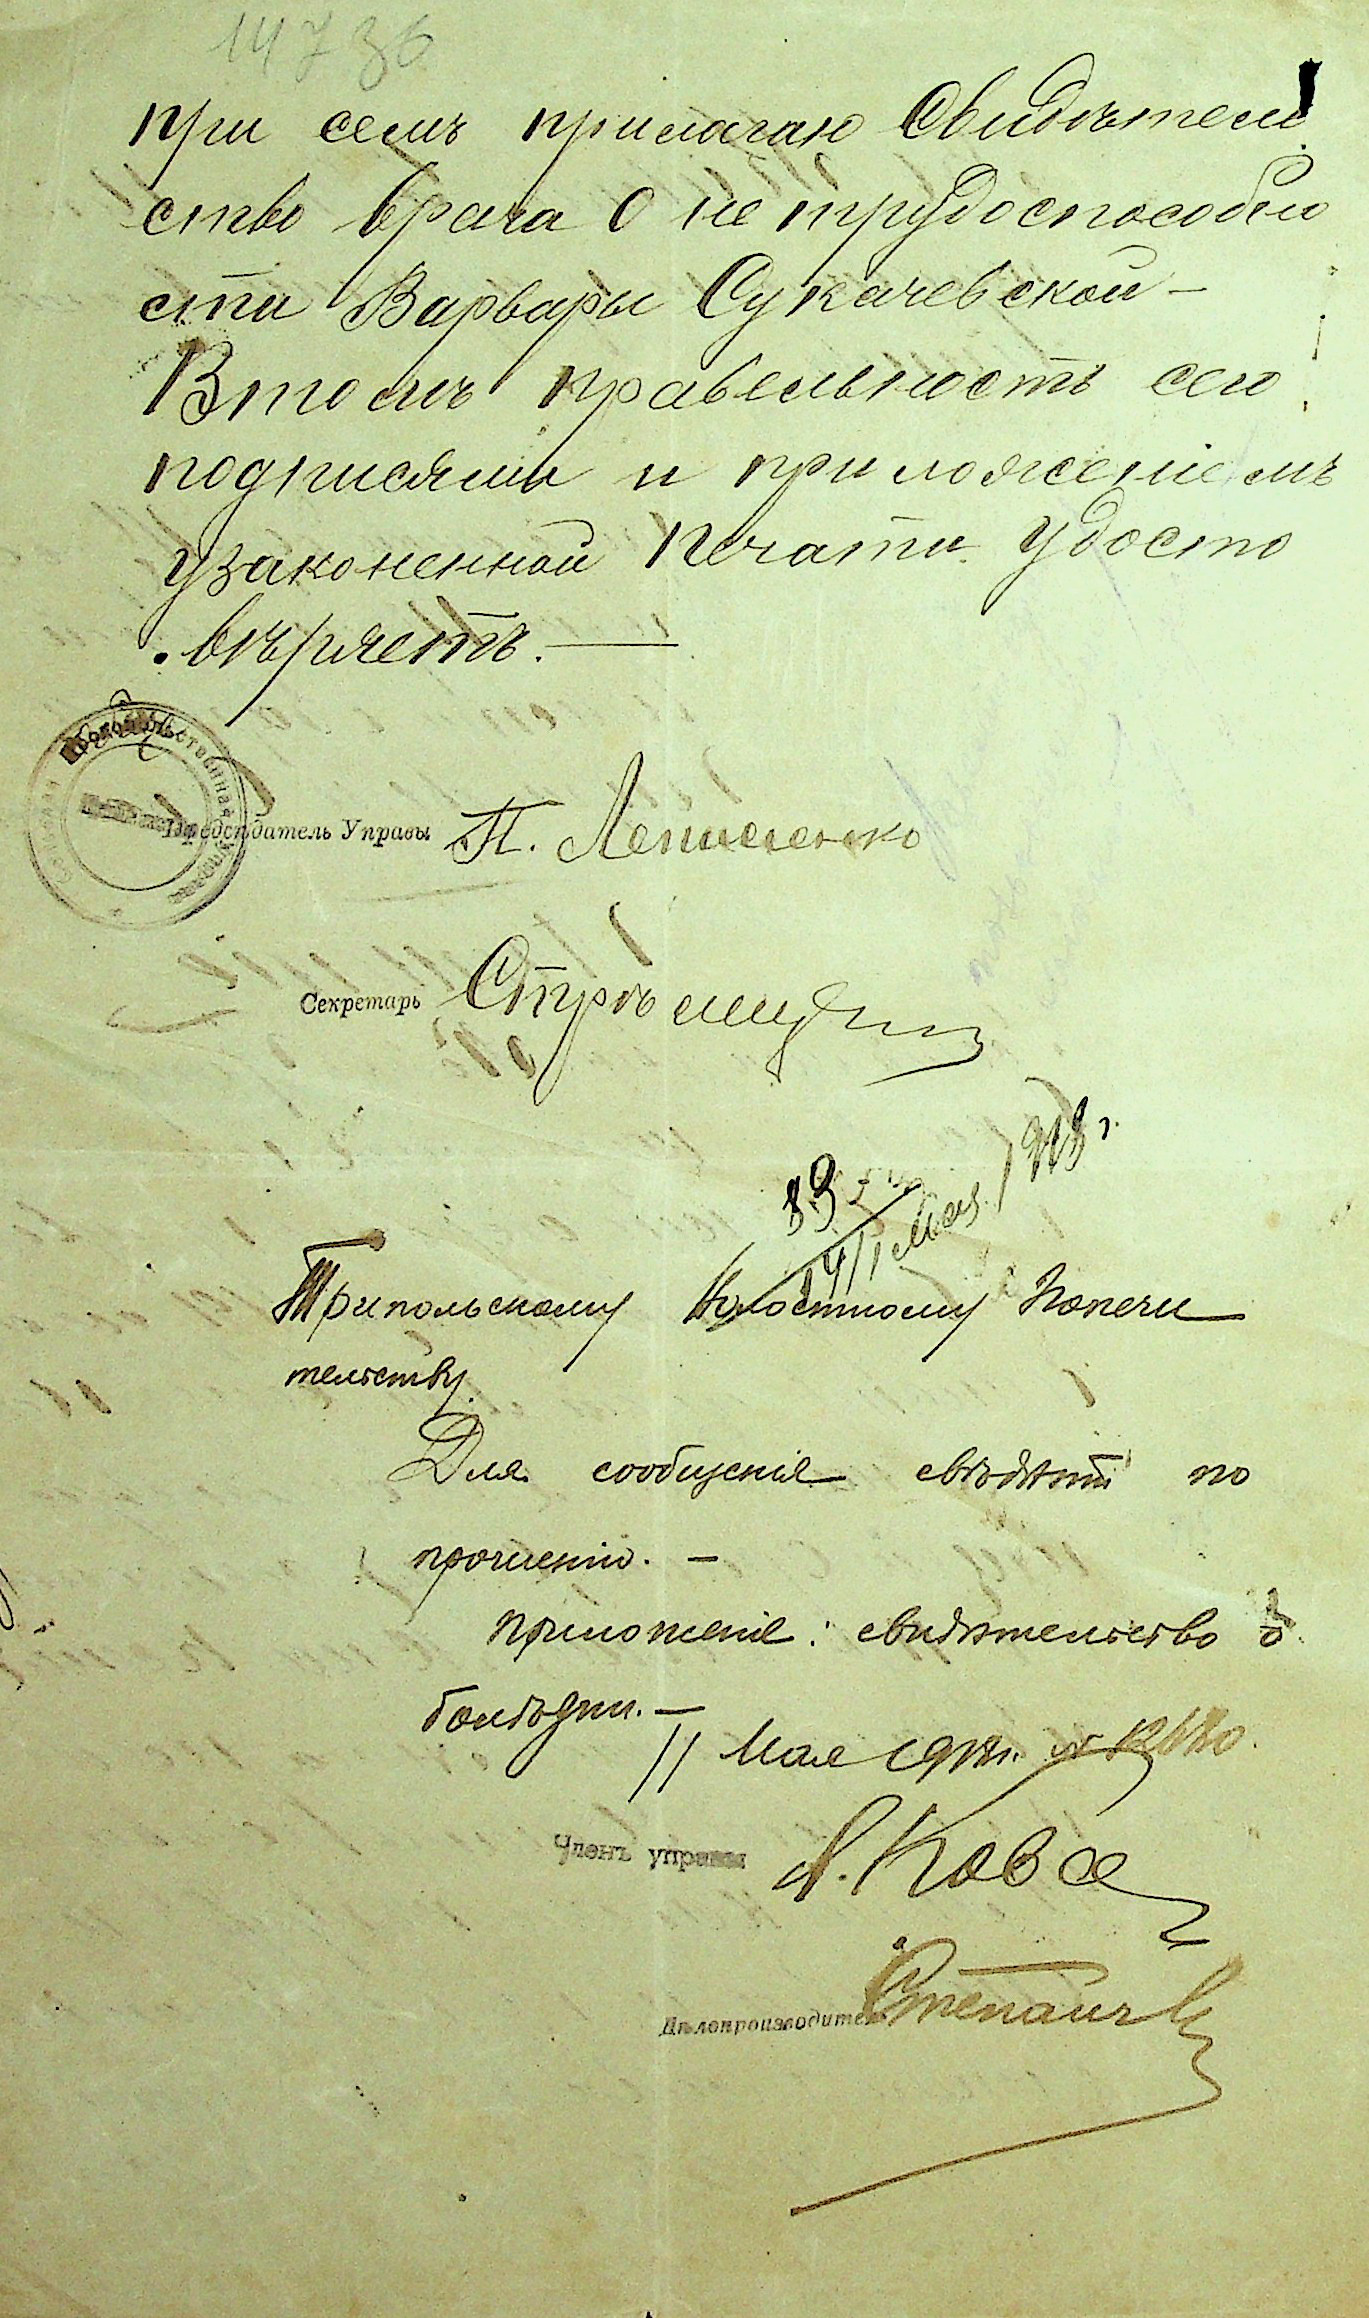 14736
при семъ прилагаю Свидѣтель
ство врача О не трудоспособно
сти Варвары Сукачевской —
В томъ правельность сего
подписями и приложеніемъ
узаконенной Печати Удосто
вѣряетъ. —
Предсѣдатель Управы П. Лепшеенко
Секретарь
14/1 Мая 1918 г.
Трипольскому Волостному Попечи
тельству.
Для сообщенія свѣдѣній по
прошенію. —
Приложеніе: свидѣтельство о
болѣзни. —
11 Мая 1918 г.
Членъ управы А. Ковал
Дѣлопроизводитель